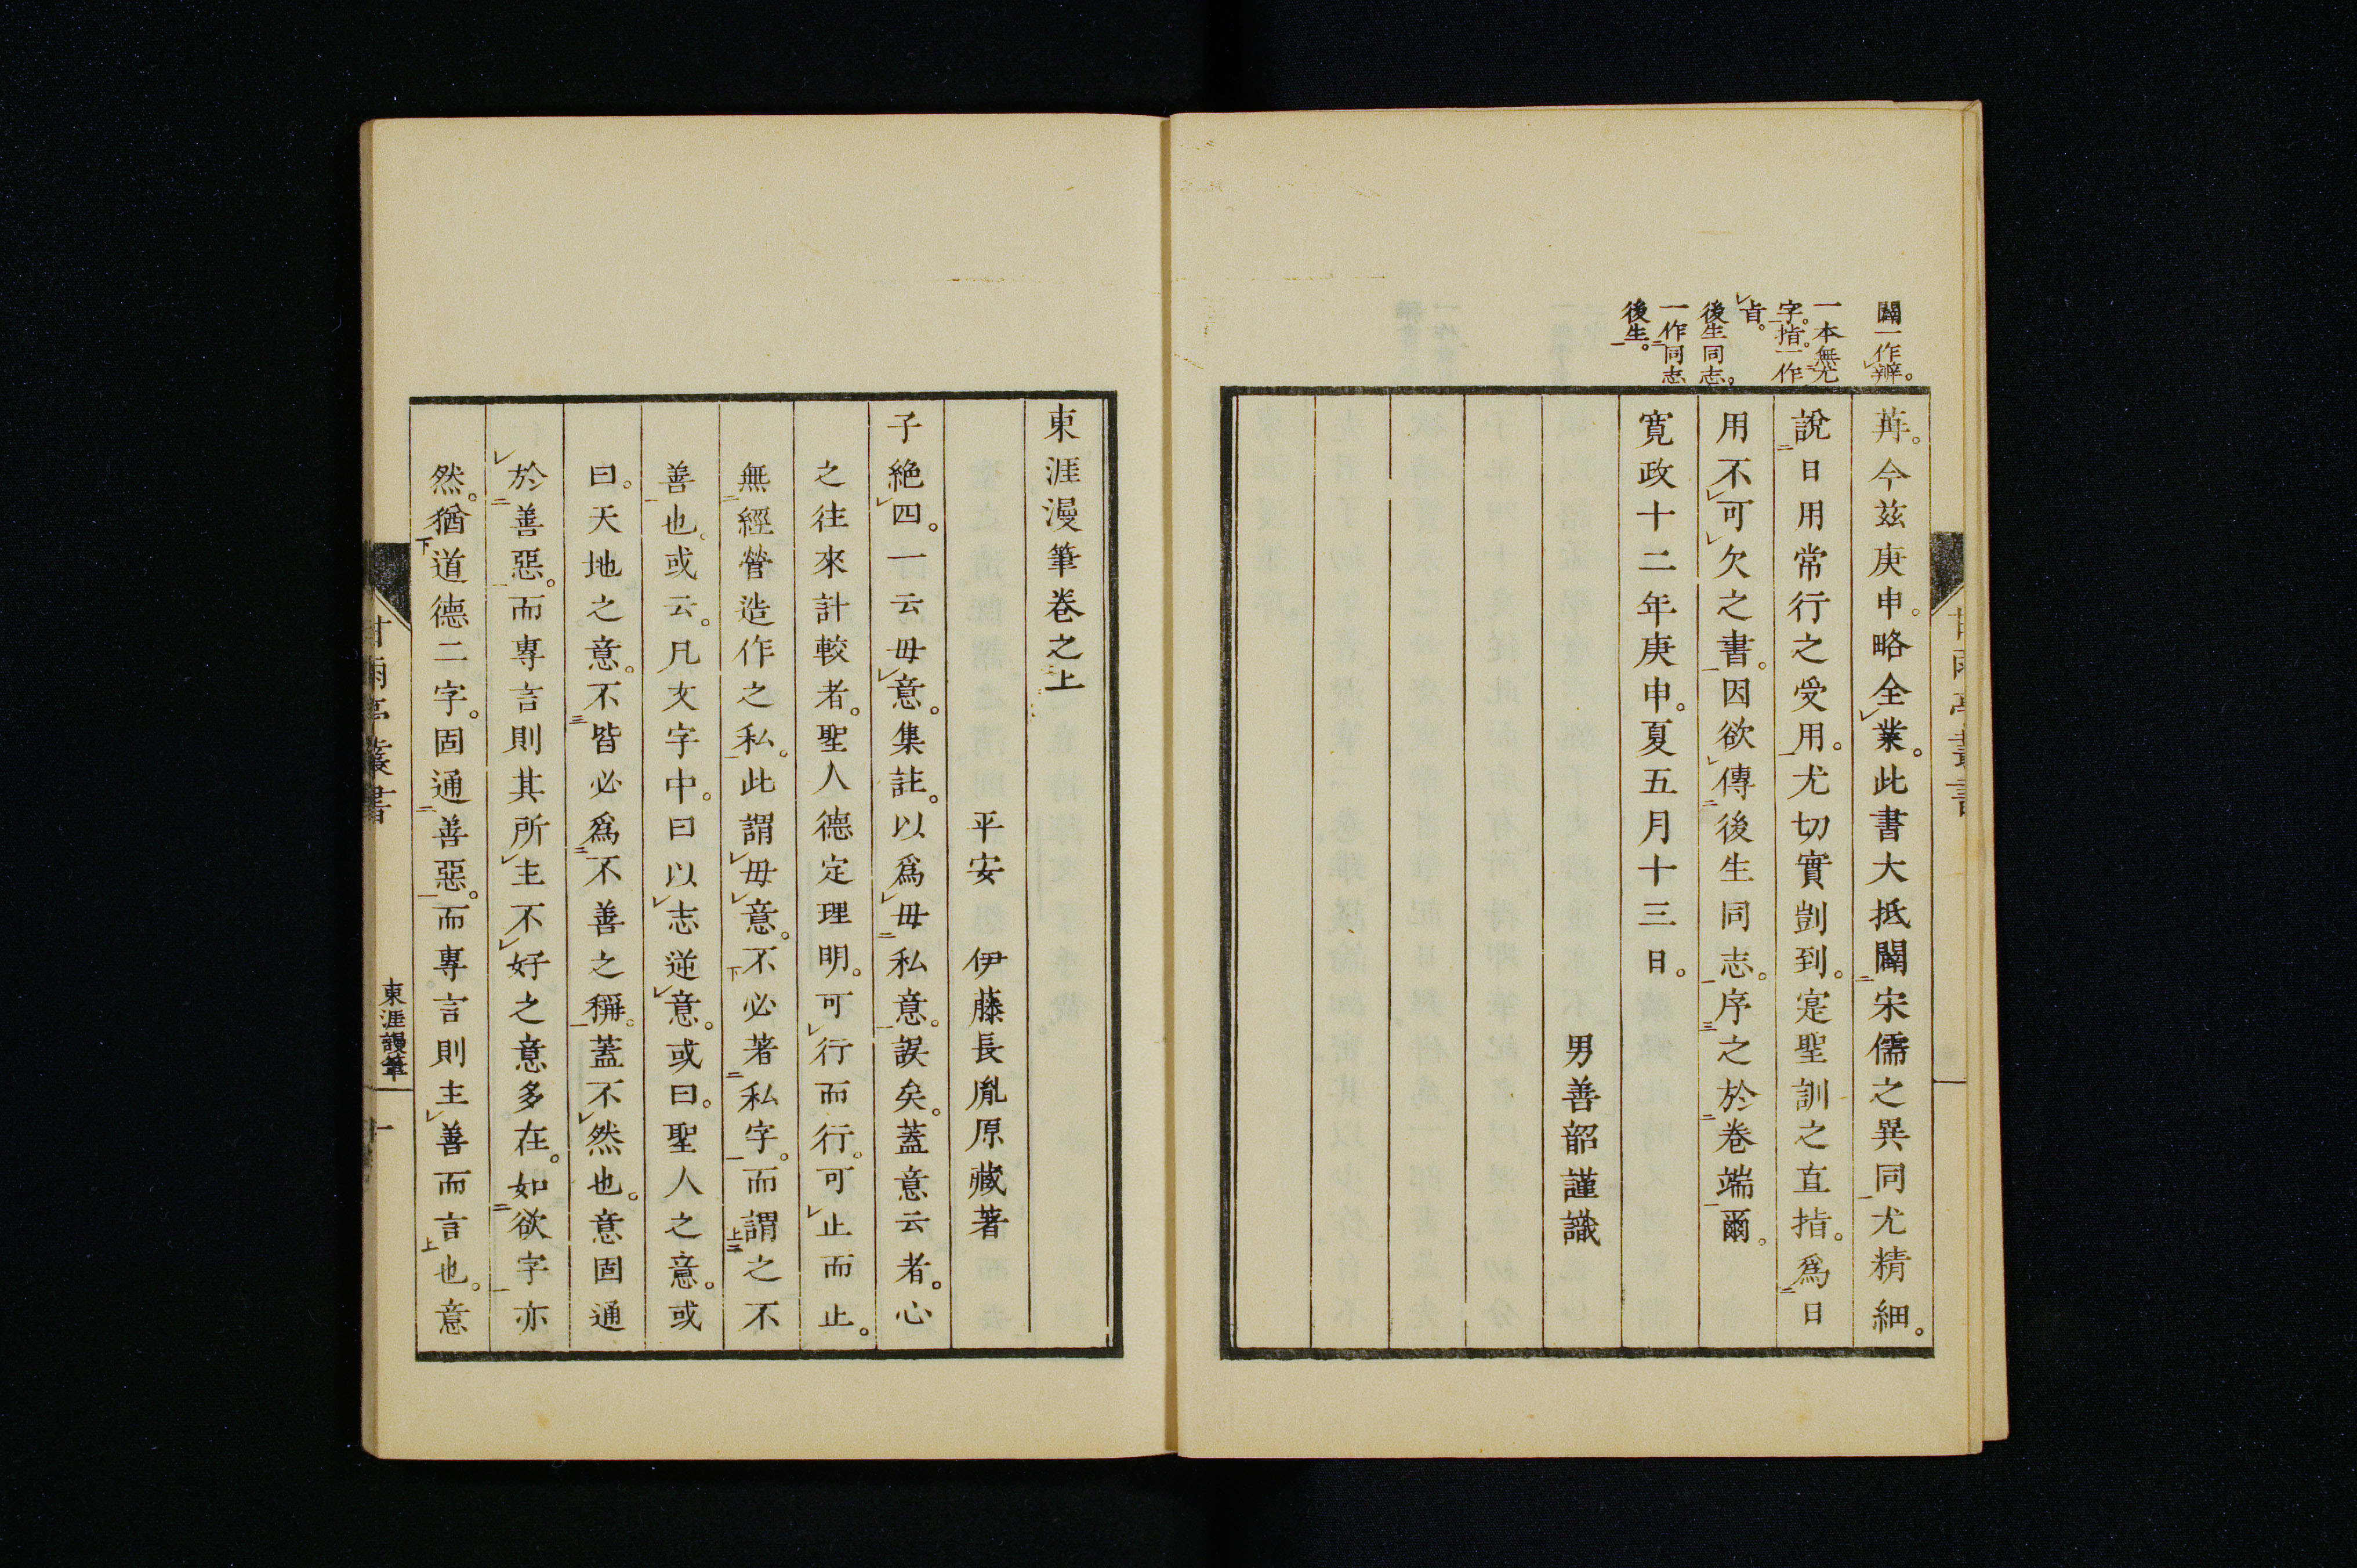 闢一作辨。
一本無尤
字。指一作
旨。
後生同志。
一作同志
後生。
苒。今玆庚申。略全業。此書大抵闢宋儒之異同尤精細。
說日用常行之受用。尤切實剴到。寔聖訓之直指。爲日
用不可欠之書。因欲傳後生同志。序之於卷端爾。
寬政十二年庚申。夏五月十三日。
男善韶謹識
東涯漫筆卷之上
平安　伊藤長胤原藏著
子絶四。一云毋意。集註。以爲毋私意。誤矣。蓋意云者。心
之往來計較者。聖人德定理明。可行而行。可止而止。
無經營造作之私。此謂毋意。不必著私字。而謂之不
善也。或云。凡文字中。曰以志逆意。或曰。聖人之意。或
曰。天地之意。不皆必爲不善之稱。蓋不然也。意固通
於善惡。而專言則其所主不好之意多在。如欲字亦
然。猶道德二字。固通善惡。而專言則主善而言也。意
甘雨亭叢書
東涯謾筆
一